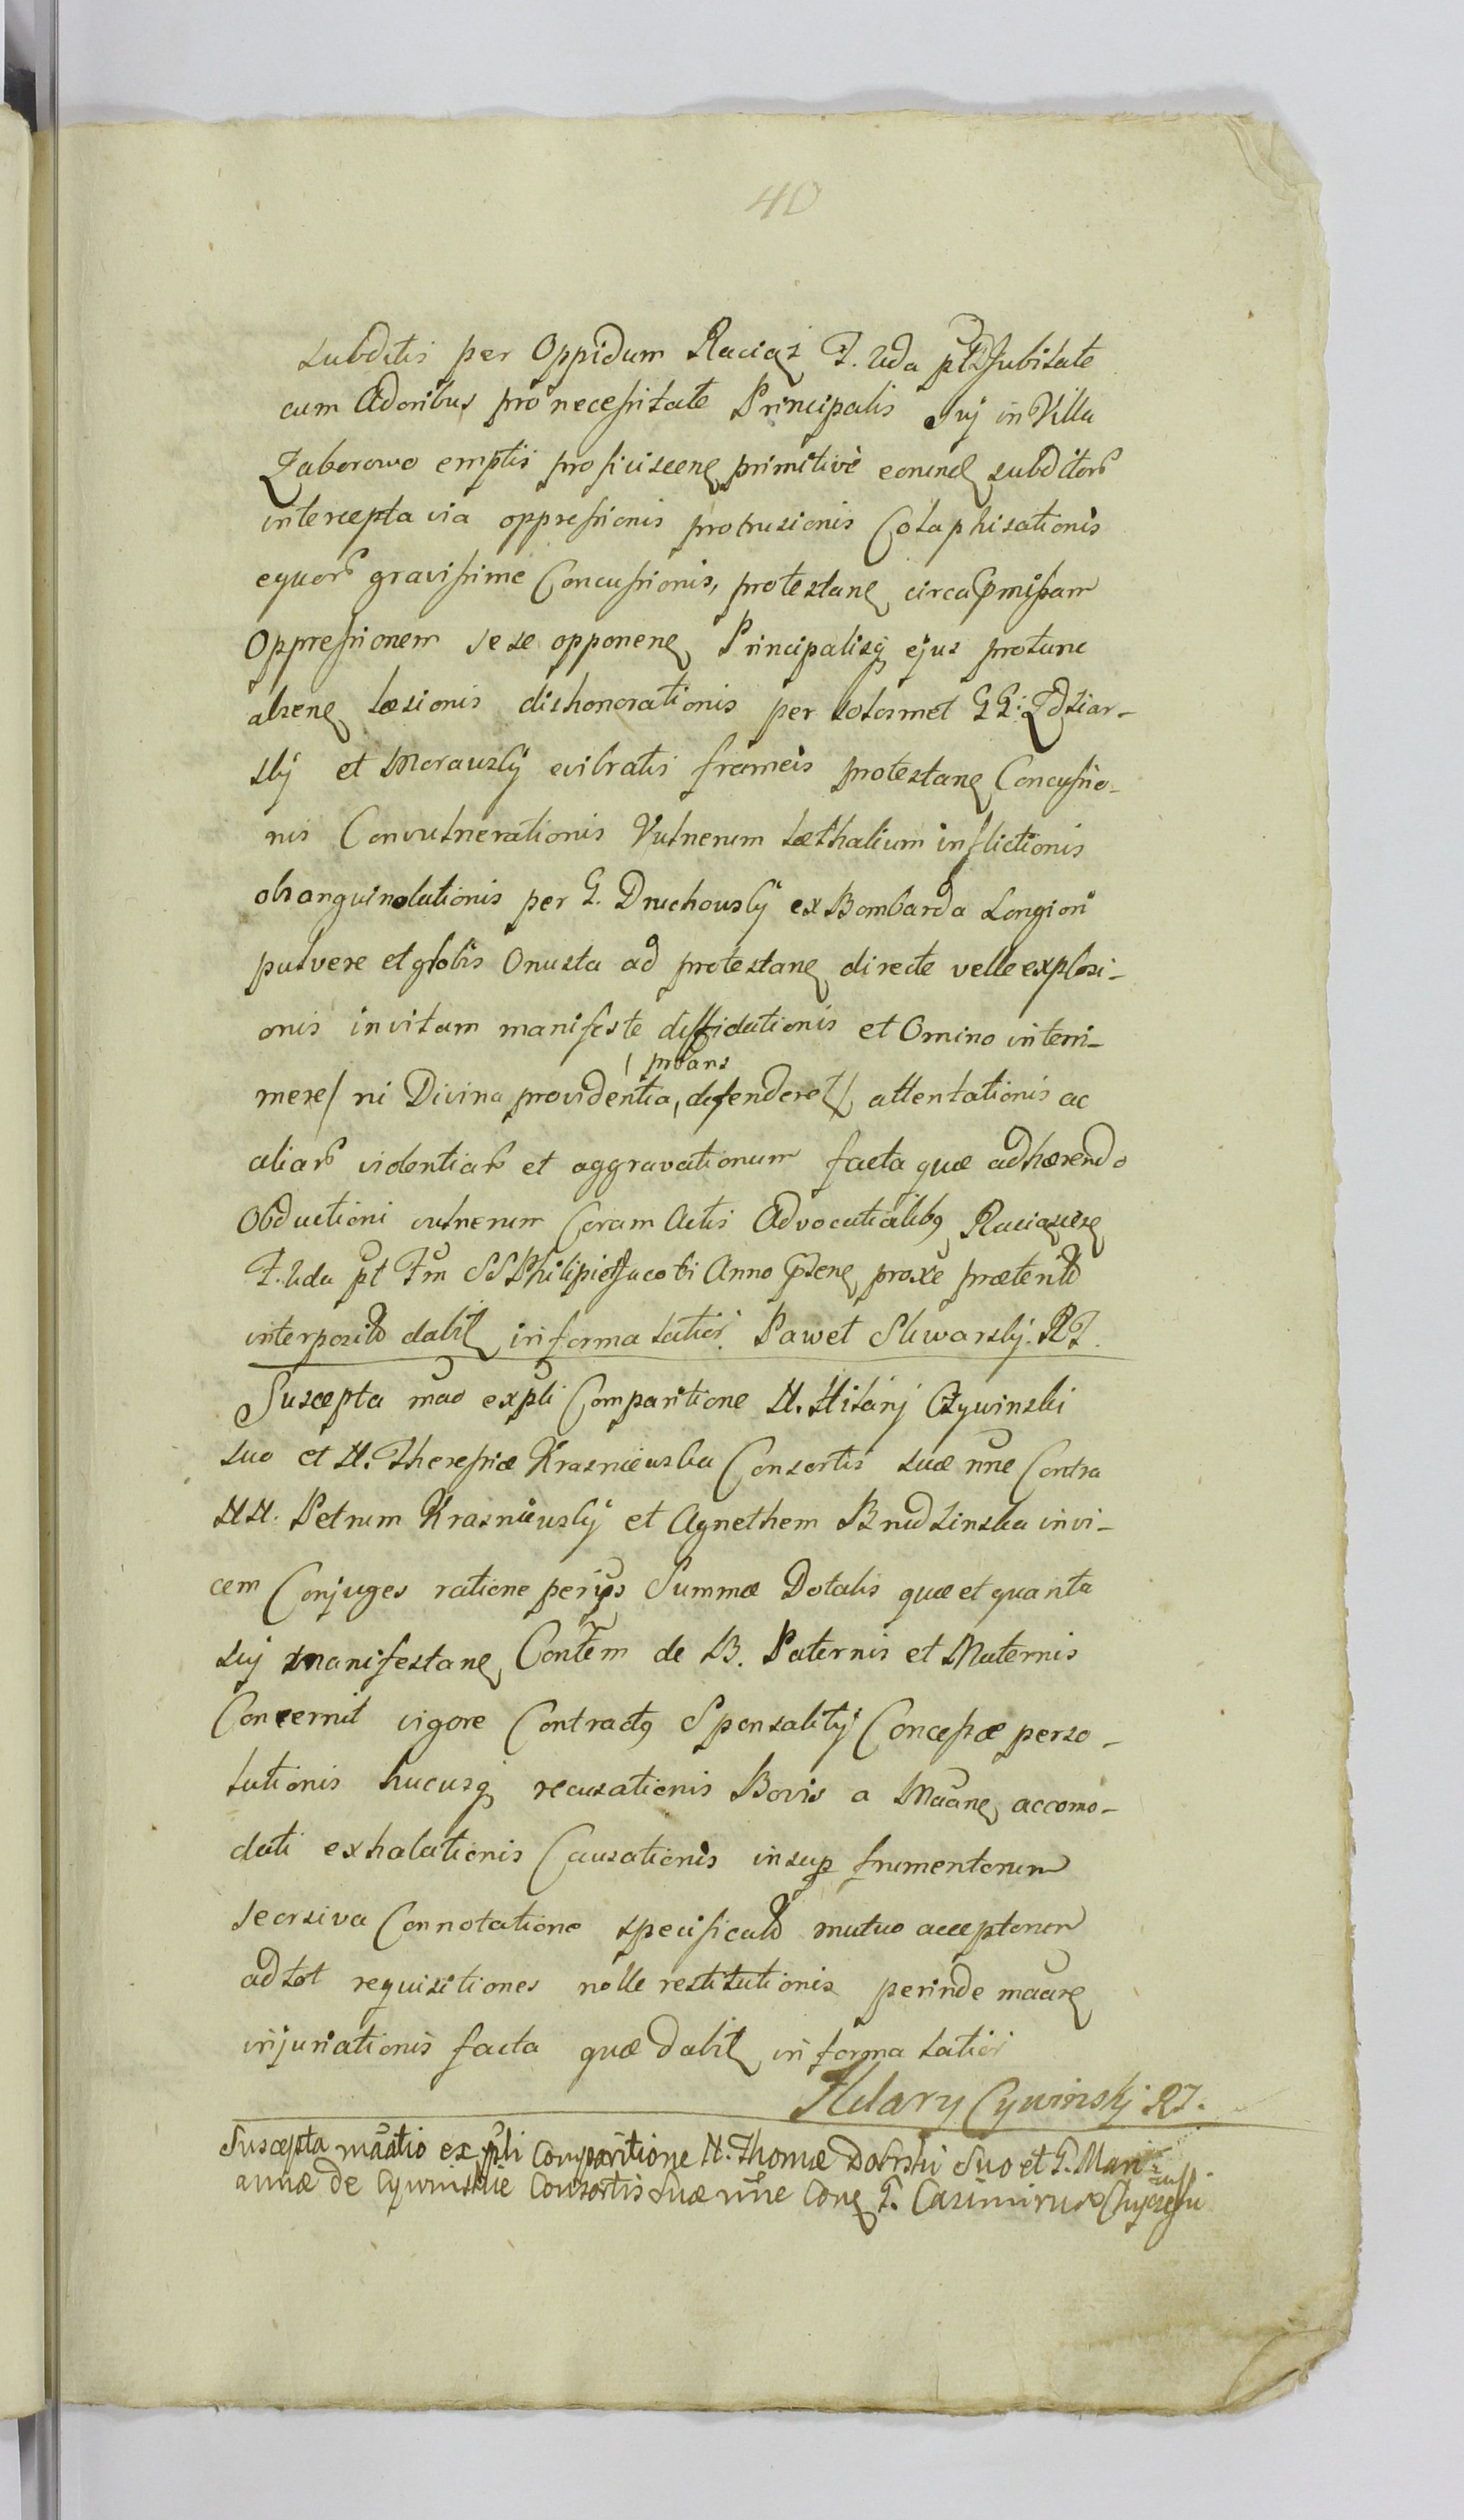 40
subditis per Oppidum Raciąz F. 2da pt Jubilate
cum Adoribus pro necessitate Principalis sui in Villa
Zaborowo emptis proficiscen primitive eorund subditorū
intercepta via oppressionis protrusionis Colaphisationis
equorū gravissime Concussionis, protestan circa pmissam
Oppressionem sese opponen Principalisq ejus protunc
absen læsionis dishonorationis per solosmet GG: Zdziar-
skij et Morawskij evibratis frameis protestan Concussio-
nis Convulnerationis Vulnerum læthalium inflictionis
obsanguinolationis per G. Druchowskij ex Bombarda Longiori
pulvere et globis Onusta ad protestan directe velle explosi-
onis in vitam manifeste diffidationis et Omino interi-
mere/ ni Divina providentia, protans defenderet/ attentationis ac
aliarū violentiarū et aggravationum facta quæ adhærendo
Obductioni vulnerum Coram Actis Advocatialibq Raciązesen
F. 2da pt Fm SS Philipi et Jacobi Anno psen proxe præterito
interposito dabit in forma latiori. Paweł Skwarskij. RJ.
Suscepta mao expli Comparitione N. Hilarij Czywinski
suo et N. Theressiæ Krasniewska Consortis suæ nne Contra
NN. Petrum Krasniewskij et Agnethem Brudzinska invi-
cem Conjuges ratione perijs Summæ Dotalis quæ et quanta
sui manifestan Contem de B. Paternis et Maternis
Concernit vigore Contractq Sponsalitij Concessæ perso-
lutionis hucusq recusationis Bovis a Maane accomo-
dati exhalationis Causationis insup frumentorum
seorsiva Connotatione specificato mutuo acceptorum
ad tot requisitiones nolle restitutionis perinde maare
injuriationis facta quæ dabit in forma latiori
Hilary Cywinskj RJ.
Suscepta maatio ex pli Comparitione N. Thomæ Dobrski Suo et G. Mari-
annæ de Cywinskie Consortis Suæ nne Con G. Casimirum